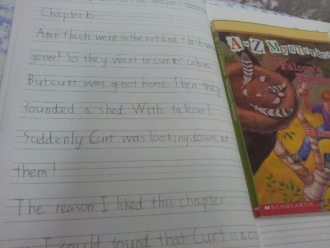 Chapter 6
gone! So they went to curt's cabin.
But curt was not home. Then they
founded a shed. With falcons!
Suddenly Curt was looking down at
them!
The reason I liked this chapter
I could found that Curt is
A to Z Mysteries
SCHOLASTIC